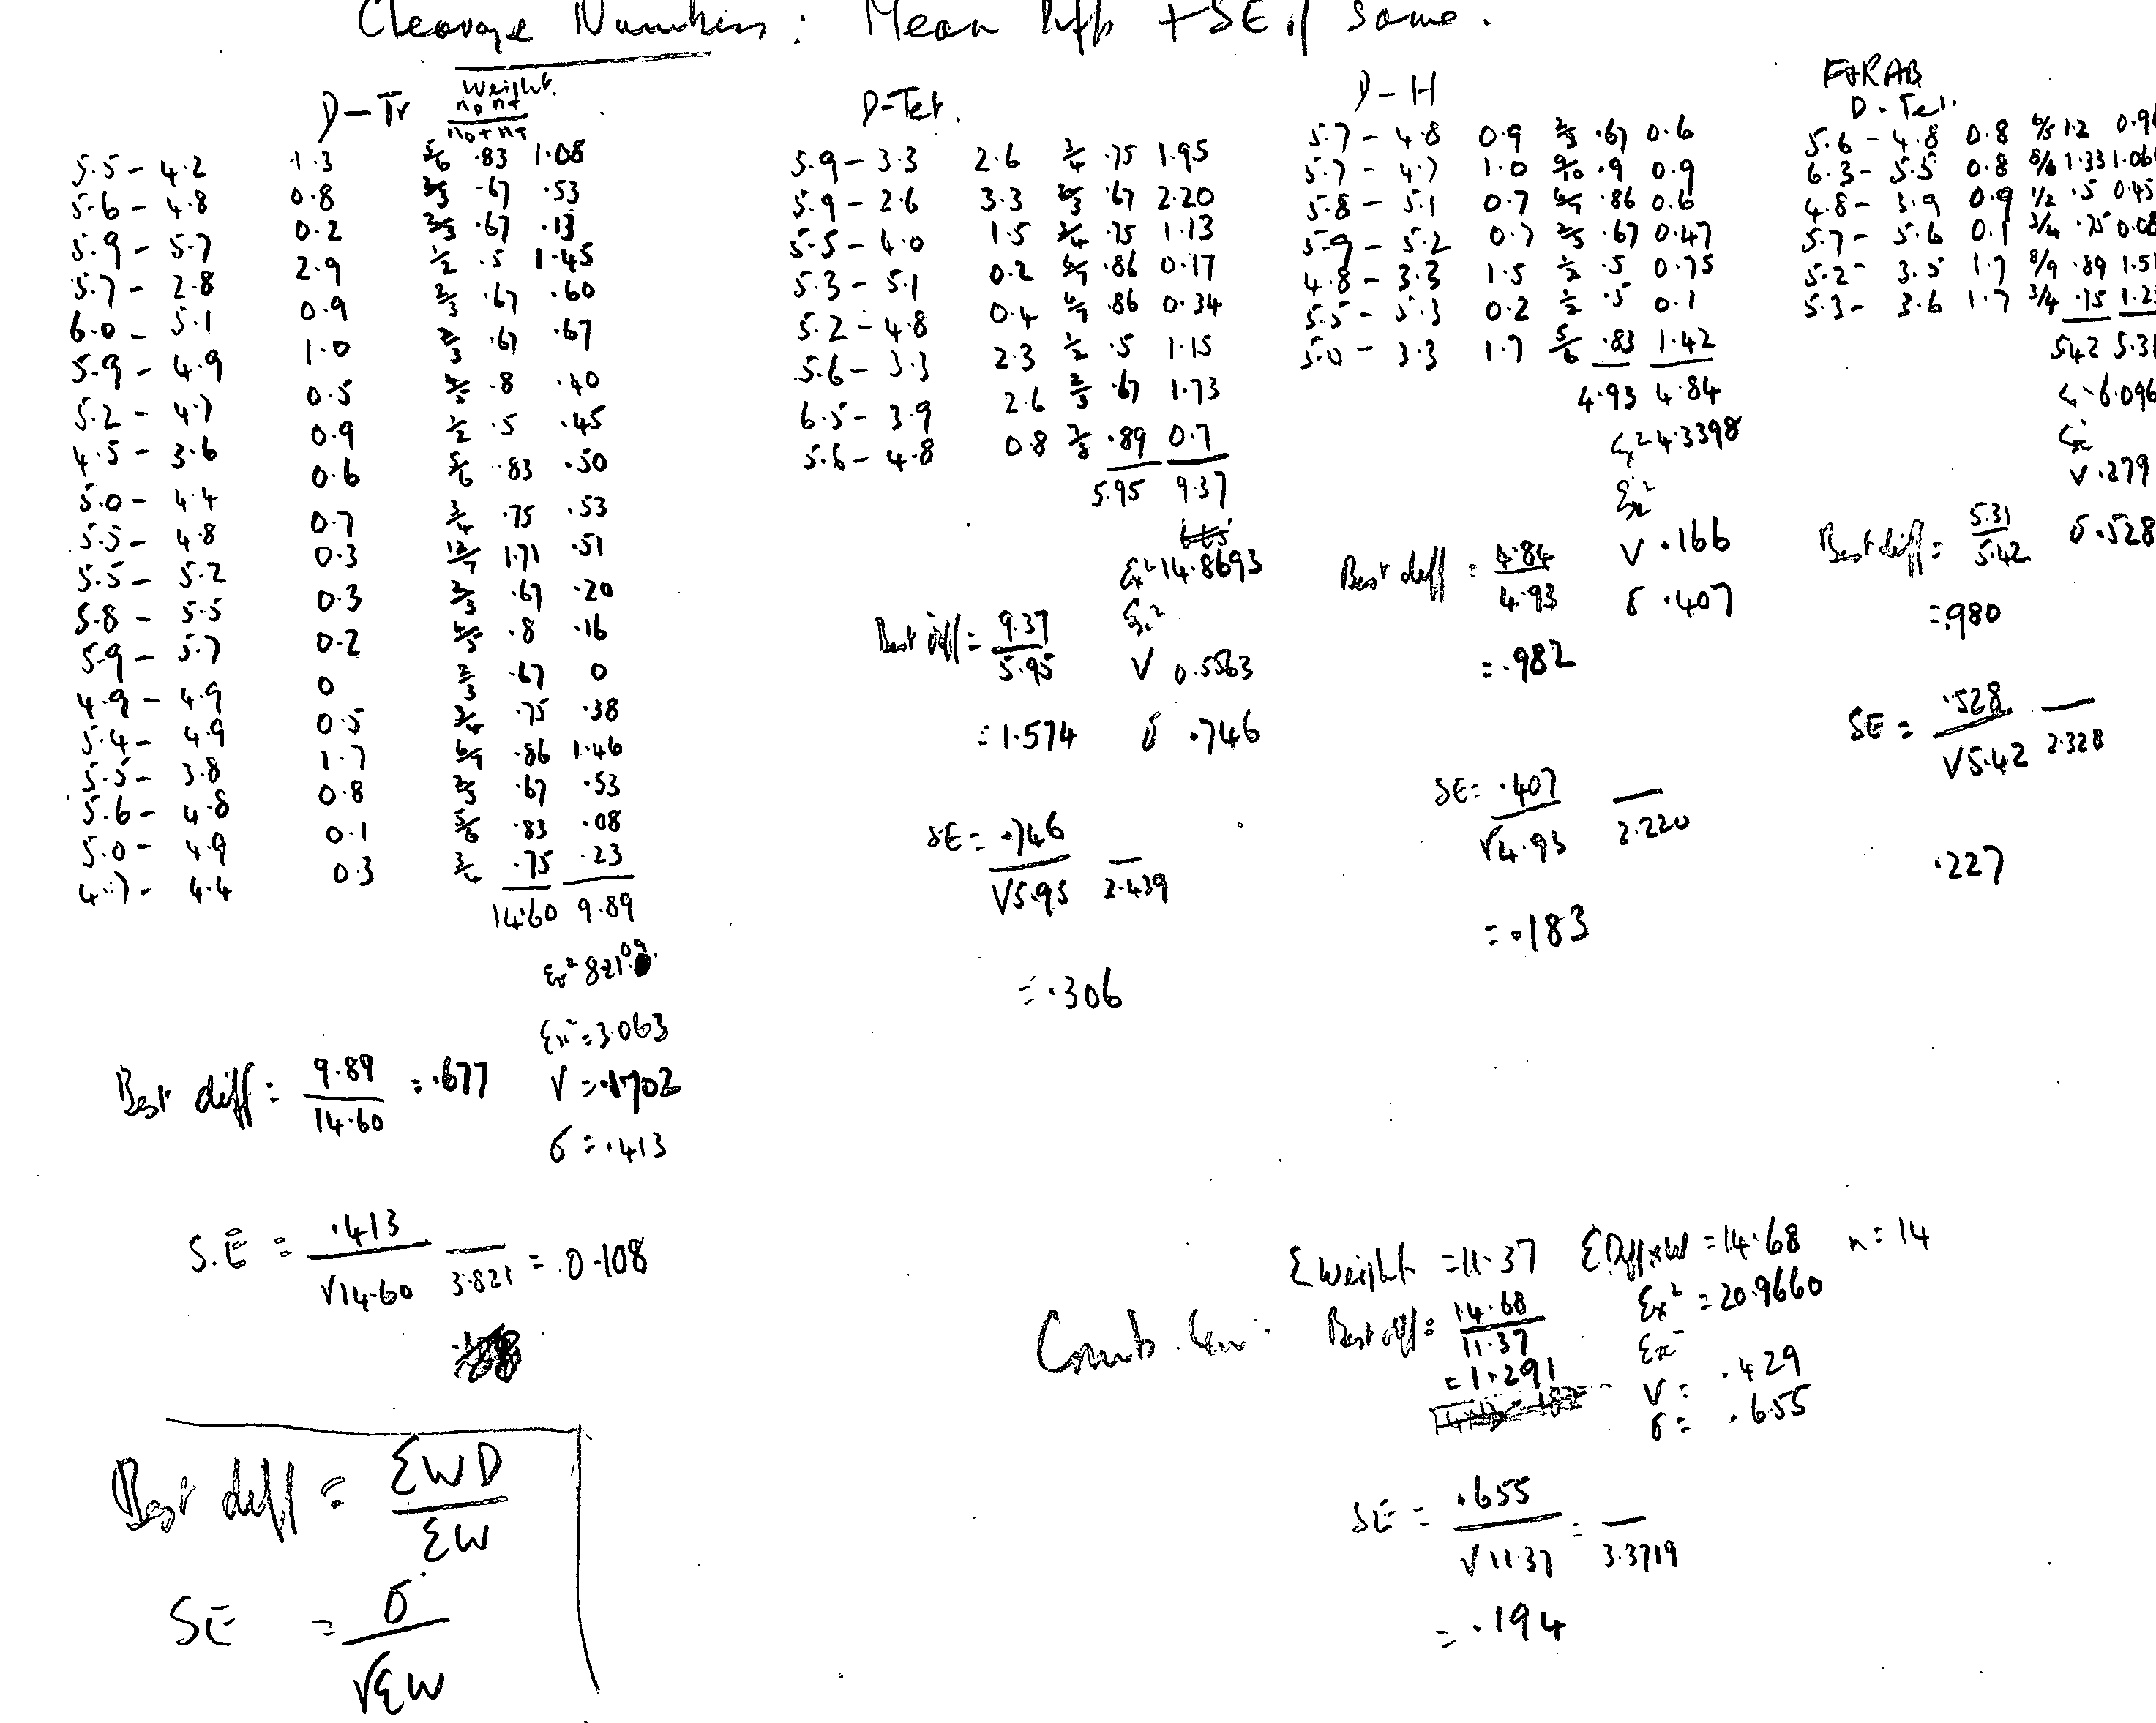 Cleavage Numbers: Mean Diff + SE if same.
D-Tr Weight nD nT / nD + nT
5.5 - 4.2 1.3 5/6 .83 1.08
5.6 - 4.8 0.8 2/3 .67 .53
5.9 - 5.7 0.2 2/3 .67 .13
5.7 - 2.8 2.9 1/2 .5 1.45
6.0 - 5.1 0.9 2/3 .67 .60
5.9 - 4.9 1.0 2/3 .67 .67
5.2 - 4.7 0.5 4/5 .8 .40
4.5 - 3.6 0.9 1/2 .5 .45
5.0 - 4.4 0.6 5/6 .83 .50
5.5 - 4.8 0.7 3/4 .75 .53
5.5 - 5.2 0.3 12/7 1.71 .51
5.8 - 5.5 0.3 2/3 .67 .20
5.9 - 5.7 0.2 4/5 .8 .16
4.9 - 4.9 0 2/3 .67 0
5.4 - 4.9 0.5 3/4 .75 .38
5.5 - 3.8 1.7 6/7 .86 1.46
5.6 - 4.8 0.8 2/3 .67 .53
5.0 - 4.9 0.1 5/6 .83 .08
4.7 - 4.4 0.3 3/4 .75 .23
14.60 9.89
Σx² 821
Σx² = 3.063
Best diff = 9.89 / 14.60 = .677 V = .1702
σ = .413
S.E = .413 / √14.60 3.821 = 0.108
Best diff = ΣWD / ΣW
SE = σ / √ΣW
D-Tet.
5.9 - 3.3 2.6 3/4 .75 1.95
5.9 - 2.6 3.3 2/3 .67 2.20
5.5 - 4.0 1.5 3/4 .75 1.13
5.3 - 5.1 0.2 6/7 .86 0.17
5.2 - 4.8 0.4 6/7 .86 0.34
5.6 - 3.3 2.3 1/2 .5 1.15
6.5 - 3.9 2.6 2/3 .67 1.73
5.6 - 4.8 0.8 .89 0.7
5.95 9.37
Σx² 14.8693
Σx²
Best diff = 9.37 / 5.95 V 0.5563
= 1.574 σ .746
SE = .746 / √5.95 2.439
= .306
D-H
5.7 - 4.8 0.9 2/3 .67 0.6
5.7 - 4.7 1.0 9/10 .9 0.9
5.8 - 5.1 0.7 6/7 .86 0.6
5.9 - 5.2 0.7 2/3 .67 0.47
4.8 - 3.3 1.5 1/2 .5 0.75
5.5 - 5.3 0.2 1/2 .5 0.1
5.0 - 3.3 1.7 5/6 .83 1.42
4.93 4.84
Σx² 4.3398
Σx²
V .166
Best diff = 4.84 / 4.93 σ .407
= .982
SE = .407 / √4.93 2.220
= .183
D-Tet.
5.6 - 4.8 0.8 6/5 1.2 0.96
6.3 - 5.5 0.8 8/6 1.33 1.06
4.8 - 3.9 0.9 1/2 .5 0.45
5.7 - 5.6 0.1 3/4 .75 0.08
5.2 - 3.5 1.7 8/9 .89 1.51
5.3 - 3.6 1.7 3/4 .75 1.2
5.42 5.31
6.096
V .279
Best diff = 5.31 / 5.42 σ .528
= .980
SE = .528 / √5.42 2.328
.227
Σ Weight = 11.37 Σ Diff x W = 14.68 n = 14
Comb. Best diff = 14.68 / 11.37 Σx² = 20.9660
= 1.291 Σx²
V = .429
σ = .655
SE = .655 / √11.37 = 3.3719
= .194